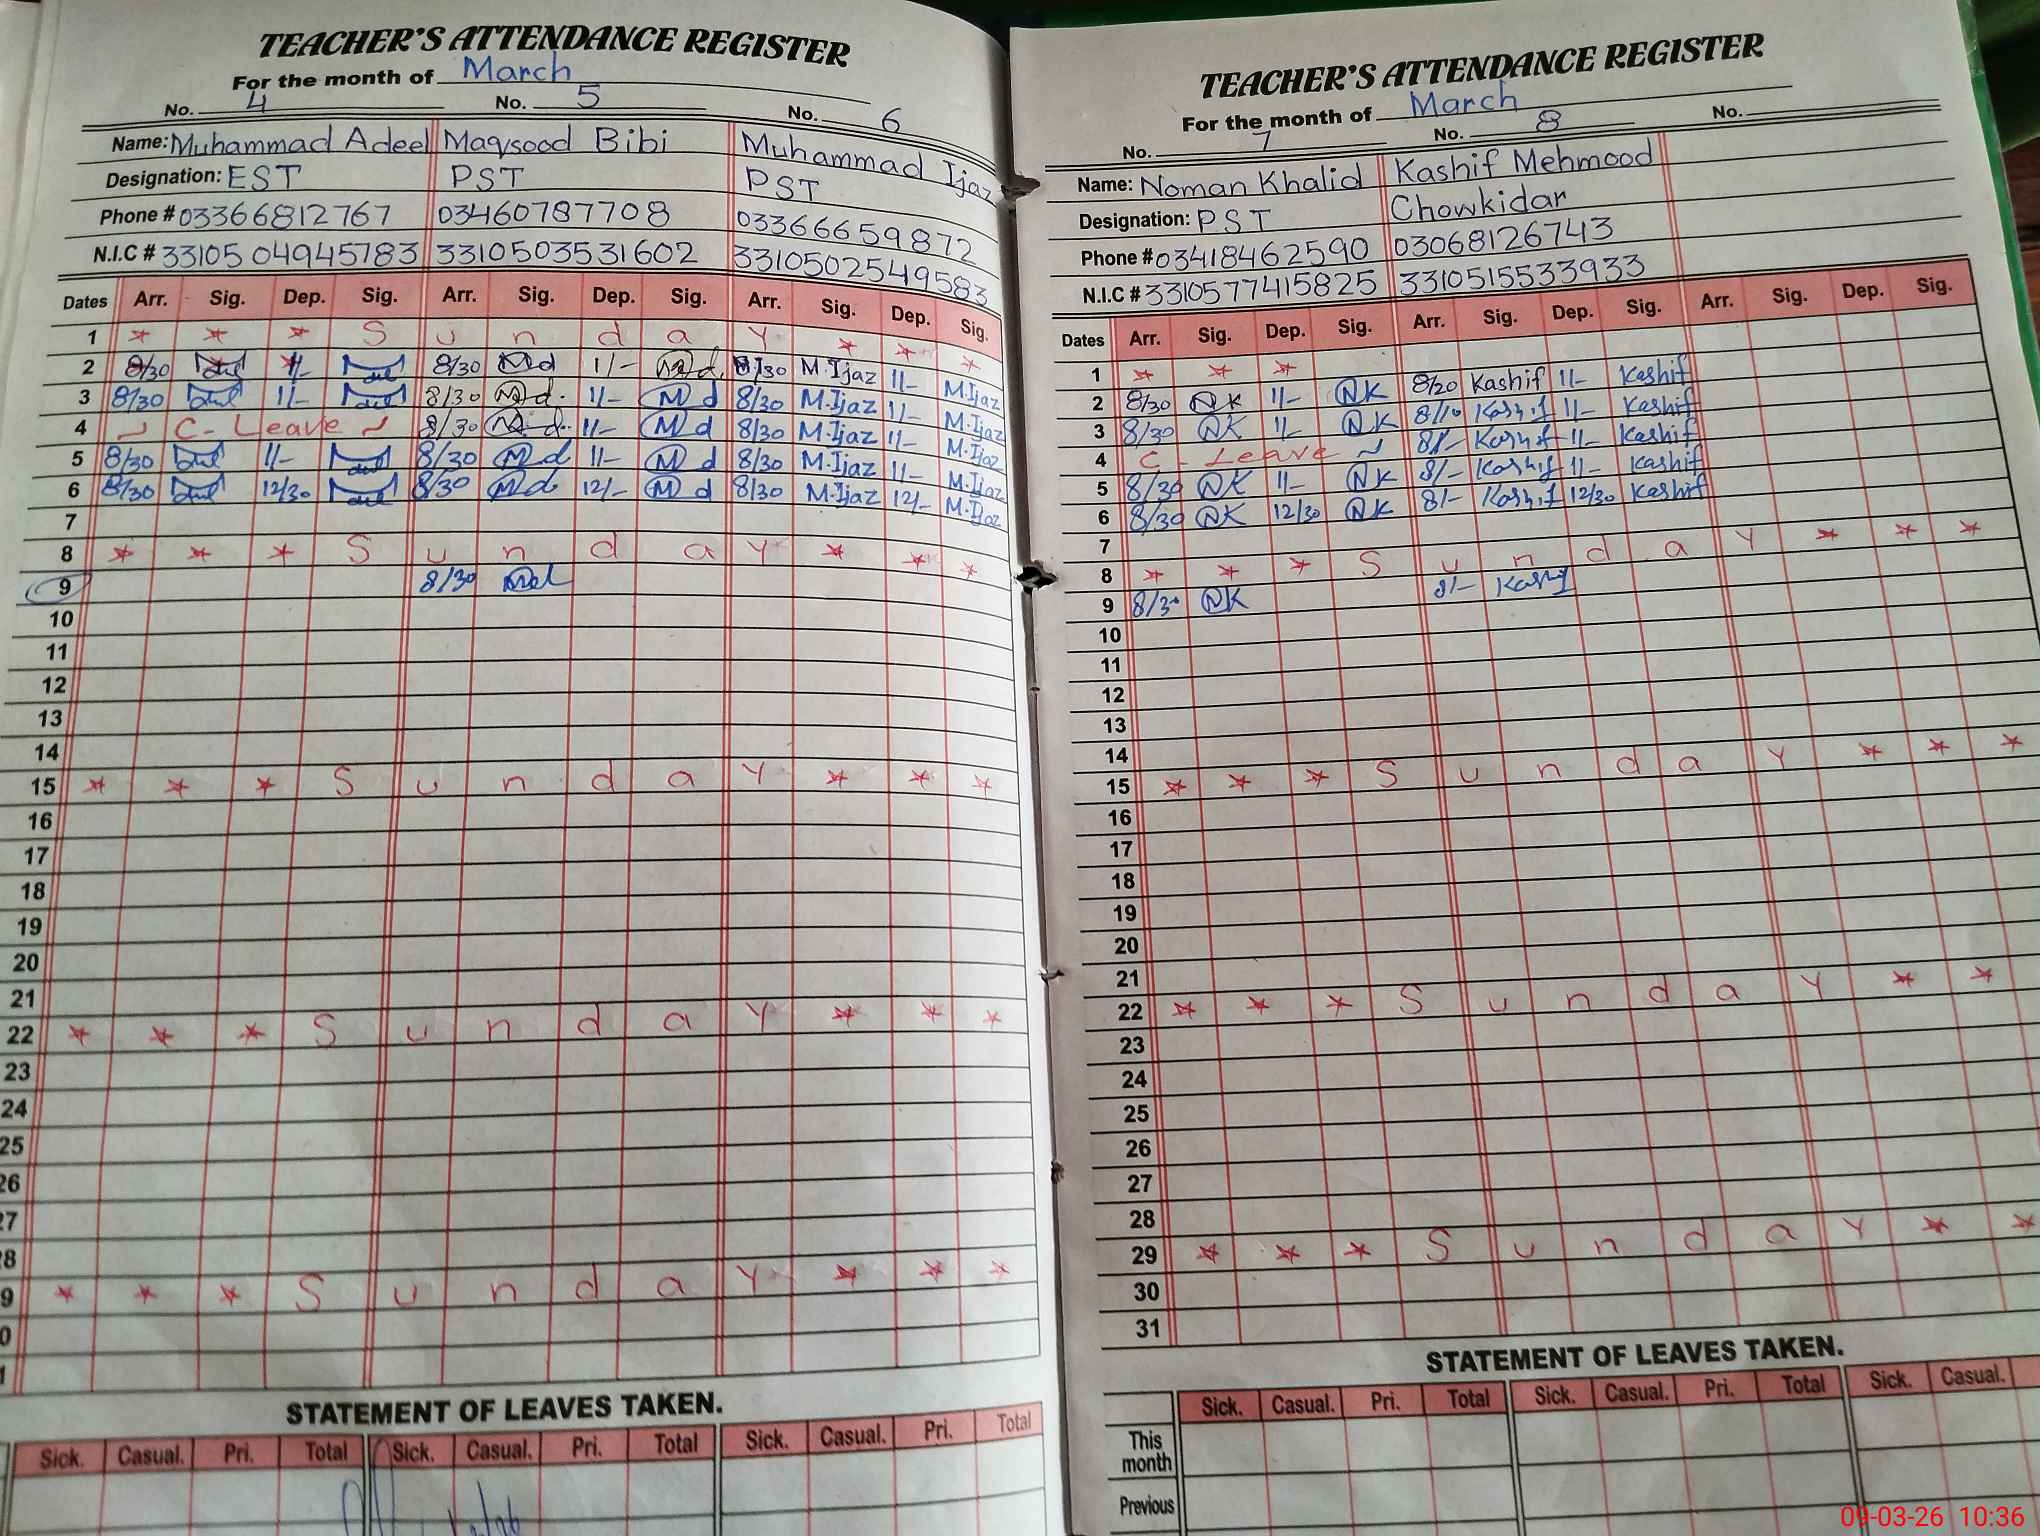 TEACHER'S ATTENDANCE REGISTER
For the month of March
No. 4 No. 5 No. 6
Name: Muhammad Adeel Maqsood Bibi Muhammad Ijaz
Designation: EST PST PST
Phone # 03366812767 03460787708 03366659872
N.I.C # 33105 04945783 3310503531602 3310502549583
Dates Arr. Sig. Dep. Sig. Arr. Sig. Dep. Sig. Arr. Sig. Dep. Sig.
1 * * * S u n d a y * * *
2 8/30 11/- 8/30 Md 1/- Md 8/30 M.Ijaz 11/- M.Ijaz
3 8/30 11/- 8/30 Md 11/- Md 8/30 M.Ijaz 11/- M.Ijaz
4 C-Leave 8/30 Md 11/- Md 8/30 M.Ijaz 11/- M.Ijaz
5 8/30 11/- 8/30 Md 11/- Md 8/30 M.Ijaz 11/- M.Ijaz
6 8/30 12/30 8/30 Md 12/- Md 8/30 M.Ijaz 12/- M.Ijaz
7
8 * * * S u n d a y * * *
9 8/30 Md
10
11
12
13
14
15 * * * S u n d a y * * *
16
17
18
19
20
21
22 * * * S u n d a y * * *
23
24
25
26
27
8
9 * * * S u n d a y * * *
0
1
STATEMENT OF LEAVES TAKEN.
Sick. Casual. Pri. Total Sick. Casual. Pri. Total Sick. Casual. Pri. Total
TEACHER'S ATTENDANCE REGISTER
For the month of March
No. 7 No. 8 No.
Name: Noman Khalid Kashif Mehmood
Designation: PST Chowkidar
Phone # 03418462590 03068126743
N.I.C # 3310577415825 3310515533933
Dates Arr. Sig. Dep. Sig. Arr. Sig. Dep. Sig. Arr. Sig. Dep. Sig.
1 * * *
2 8/30 NK 11/- NK 8/20 Kashif 11/- Kashif
3 8/30 NK 11/- NK 8/10 Kashif 11/- Kashif
4 C-Leave 8/- Kashif 11/- Kashif
5 8/30 NK 11/- NK 8/- Kashif 11/- Kashif
6 8/30 NK 12/30 NK 8/- Kashif 12/30 Kashif
7
8 * * * S u n d a y * * *
9 8/30 NK 8/- Kashif
10
11
12
13
14
15 * * * S u n d a y * * *
16
17
18
19
20
21
22 * * * S u n d a y * *
23
24
25
26
27
28
29 * * * S u n d a y * *
30
31
STATEMENT OF LEAVES TAKEN.
Sick. Casual. Pri. Total Sick. Casual. Pri. Total Sick. Casual.
This month
Previous
09-03-26 10:36